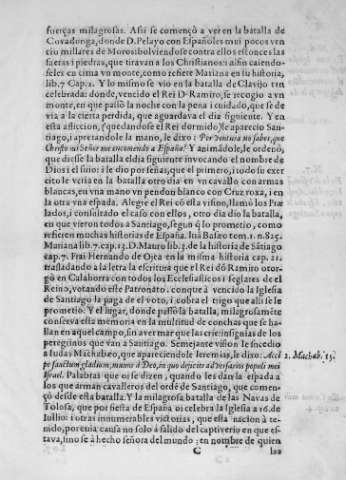 fuerças milagrosas. Assi se començò a ver en la batalla de
Covadonga, donde D. Pelayo con Españoles mui pocos ven
ciu millares de Moros: bolviendose contra ellos entonces las
saetas i piedras, que tiravan a los Christianos: i assi caiendo-
seles en cima vn monte, como refiere Mariana en su historia,
lib. 7 Cap. 2. Y lo mismo se vio en la batalla de Clavijo tan
celebrada: donde, vencido el Rei Dō Ramiro, se recogio a vn
monte, en que passò la noche con la pena i cuidado, que se de-
via a la cierta perdida, que aguardava el dia siguiente. Y en
esta afliccion, (quedandose el Rei dormido) le aparecio San-
tiago, i apretandole la mano, le dixo: Por ventura no sabes, que
Christo mi Señor me encomendo a España? Y animādole, le ordenò,
que diesse la batalla el dia siguiente invocando el nombre de
Dios: i el suio: i le dio por señas, que el primero, i todo su exer
cito le veria en la batalla otro dia en vn cavallo con armas
blancas, en vna mano vn pendon blanco con Cruz roxa, i en
la otra vna espada. Alegre el Rei cō esta vision, llamò los Pre
lados, i consultado el caso con ellos, otro dia dio la batalla,
en que vieron todos a Santiago, segun q̃ lo prometio, como
refieren muchas historias de España. Itā Basæo tom. 1. n. 825.
Mariana lib. 7. cap. 13. D. Mauro lib. 3. de la historia de Sātiago
cap. 7. Frai Hernando de Ojea en la misma historia cap. 21.
trasladando a la letra la escritura que el Rei dō Ramiro otor-
gò en Calahorra con todos los Ecclesiasticos i seglares de el
Reino, votando este Patronato. conque à vencido la Iglesia
de Santiago la paga de el voto, i cobra el trigo que alli se le
prometio. Y el lugar, donde passò la batalla, milagrosamēte
conserva esta memoria en la multitud de conchas que se ha-
llan en aquel campo, sin aver mar que las crie: insignias de los
peregrinos que van a Santiago. Semejante vision le sucedio
a Iudas Machabeo, que apareciendole Ieremias, le dixo: Acci
2. Machab. 15.
pe sanctum gladium, munus à Deo, in quo dejicies adversarios populi mei
Israel. Palabras que oi se dizen, quando les dan la espada a
los que arman cavalleros del ordē de Santiago, que comen-
çò desde esta batalla. Y la milagrosa batalla de las Navas de
Tolosa, que por fiesta de España oi celebra la Iglesia a 16. de
Iullio: i otras innumerables victorias, que esta nacion à te-
nido, por cuia causa no solo à salido del captiverio en que es-
tava, sino se à hecho señora del mundo: en nombre de quien
C
los